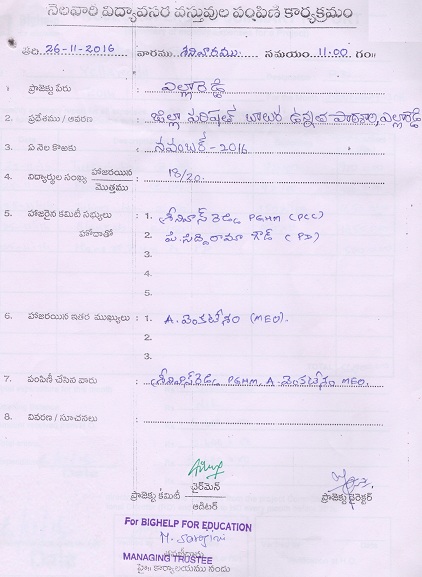 నెలవారి విద్యావసర వస్తువుల పంపిణి కార్యక్రమం
తేది. 26-11-2016 వారము శనివారము సమయం 11.00 గం॥
1. ప్రాజెక్టు పేరు : ఎల్లారెడ్డి
2. ప్రదేశము / ఆవరణ : జిల్లా పరిషత్ బాలుర ఉన్నత పాఠశాల, ఎల్లారెడ్డి
3. ఏ నెల కొఱకు : నవంబర్ - 2016
4. విద్యార్థుల సంఖ్య హాజరయిన / మొత్తము : 18/20.
5. హాజరైన కమిటీ సభ్యులు : 1. శ్రీనివాస్ రెడ్డి PGHM (PCC)
హోదాతో 2. పి. సిద్దిరామా గౌడ్ (PD)
3.
4.
5.
6. హాజరయిన ఇతర ముఖ్యులు : 1. A. వెంకటేశం (MEO).
2.
3.
7. పంపిణీ చేసిన వారు : శ్రీనివాస్ రెడ్డి PGHM, A. వెంకటేశం MEO.
8. వివరణ / సూచనలు :
ప్రాజెక్టు కమిటీ ఛైర్‌మెన్ / ఆడిటర్ ప్రాజెక్టు డైరెక్టర్
For BIGHELP FOR EDUCATION
M. Sarojini
MANAGING TRUSTEE
కార్యాలయము నందు